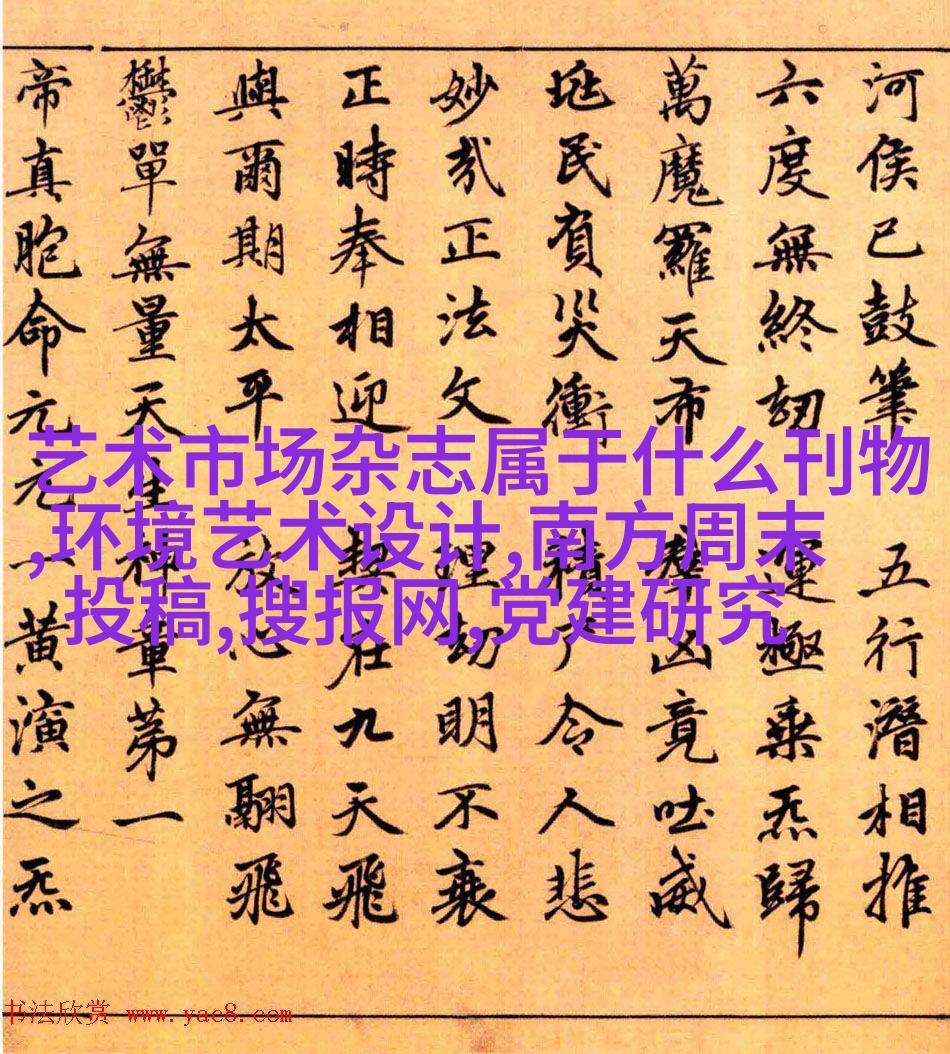 河侯已鼓筆 五行潛相推
六度無終劫 運極乘炁歸
萬魔羅天布 群凶竟吐威
民負災衝 積尸令人悲
妙哉正法文 理劫明不衰
正時奉相迎 契在九天飛
與爾期太平 放心無翮飛
鬱單無量天生神章第一
帝真胞命元元一黃演之炁
艺术市场杂志属于什么刊物
,环境艺术设计,南方周末
投稿,搜报网,党建研究
书法欣赏 www.yac8.com